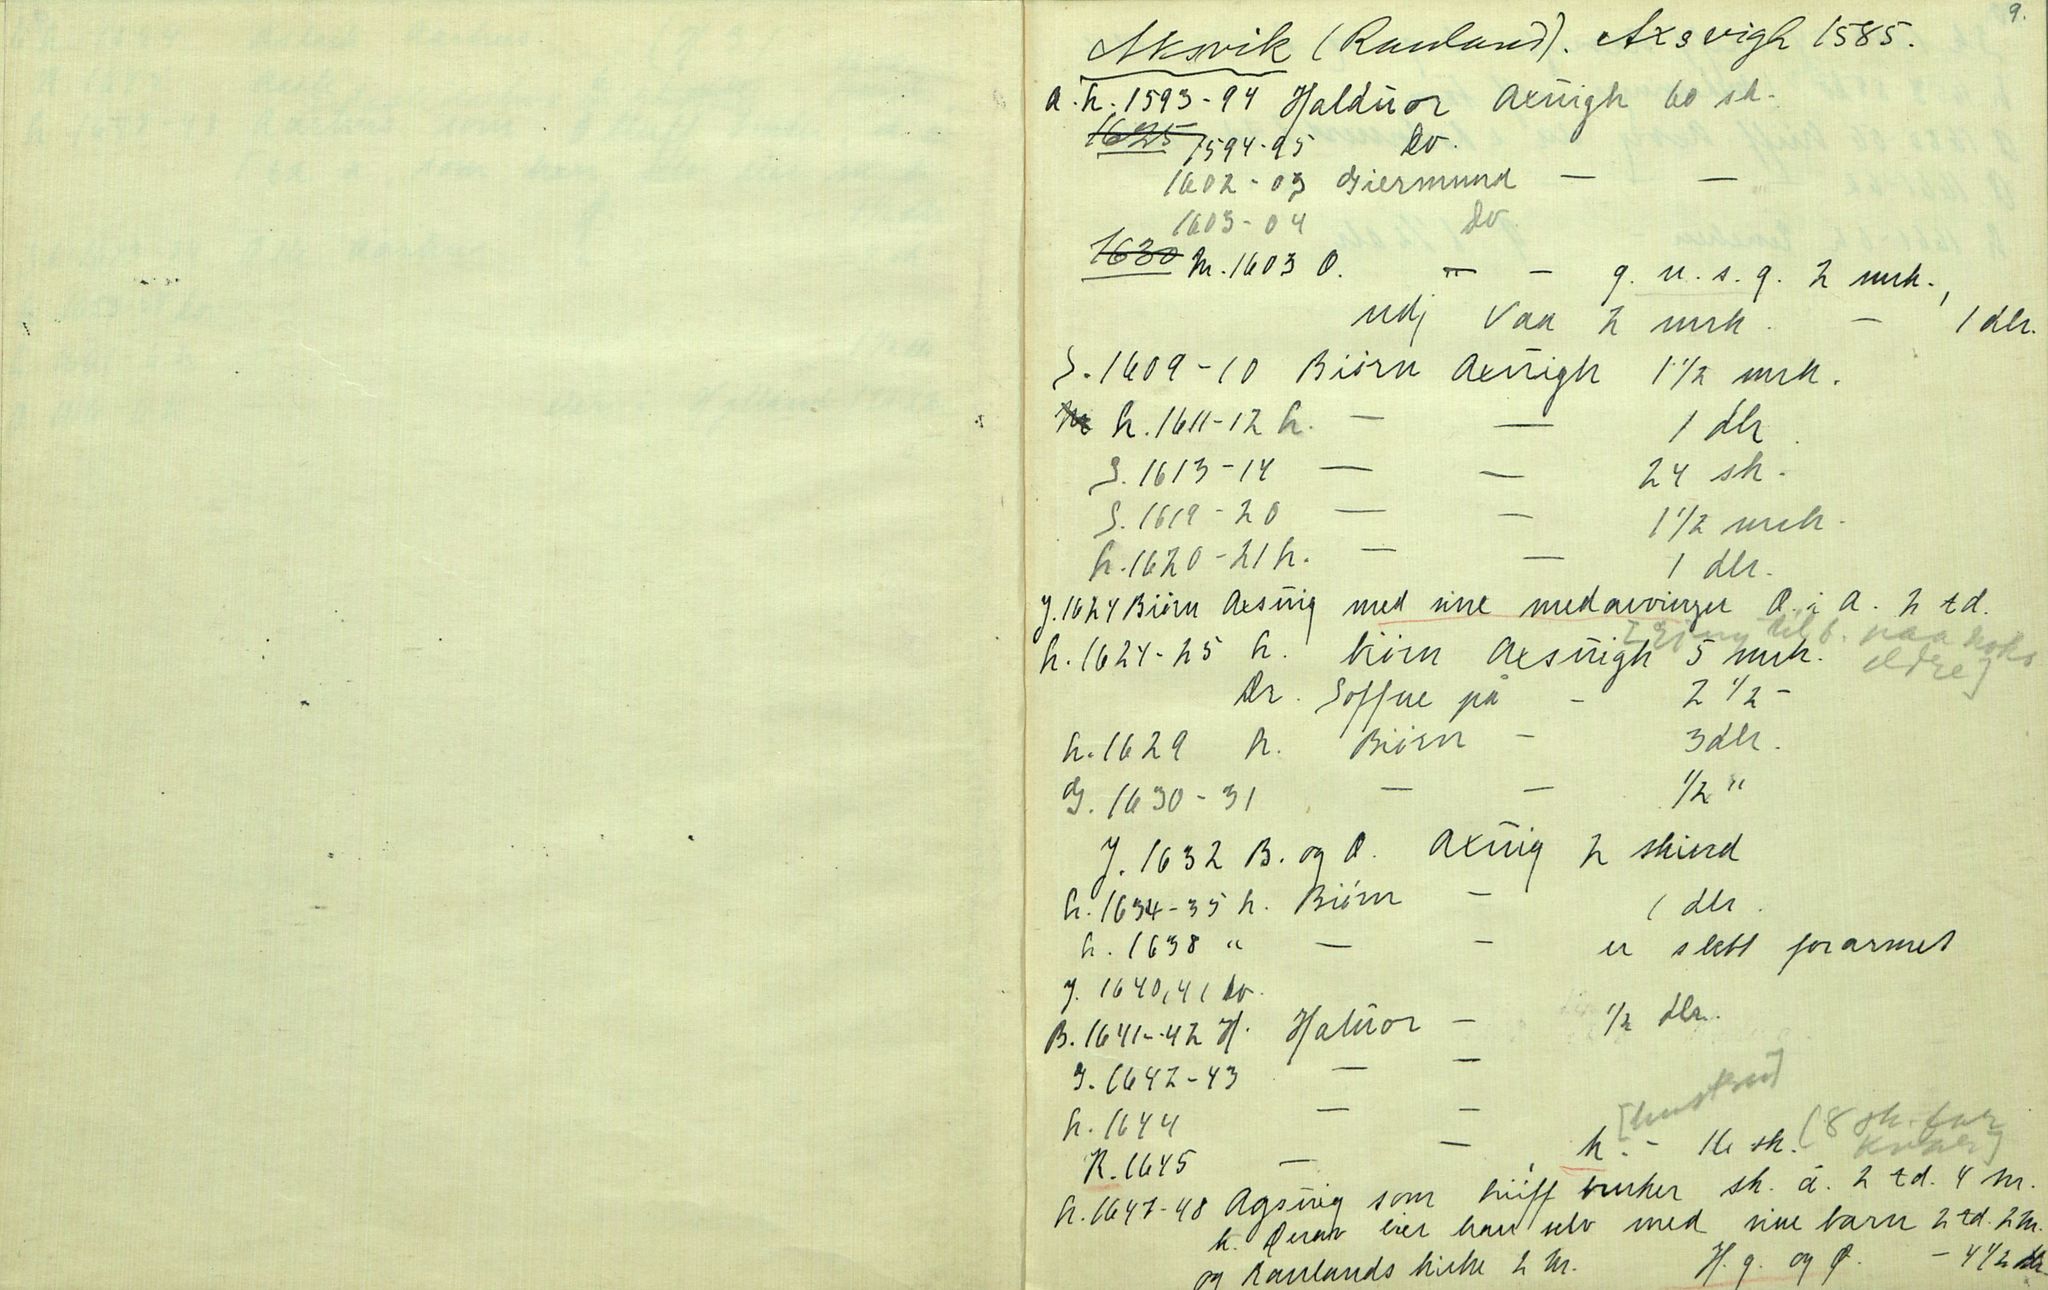 9.
Aksvik (Rauland). Axsvigh 1585.
a. h. 1593-94 Halduor Axuigh 60 sk.
1625 1594-95 Do.
1602-03 Giermund — —
1603-04 Do
1630 M. 1603 O. — — g. u. s. g. 2 mrk.,
udj Vaa 2 mrk. — 1 dlr.
S. 1609-10 Biørn Axuigh 1 1/2 mrk.
h. 1611-12 h. — — 1 dlr.
S. 1613-14 — — 24 sk.
S. 1619-20 — — 1 1/2 mrk.
h. 1620-21 h. — — 1 dlr.
J. 1624 Biørn Axsuig med sine medarvinger O. i A. 2 td.
til b. paa noko
eldre]
h. 1624-25 h. Biørn Axsuigh 5 mrk.
Dr. Soffue på - 2 1/2 -
h. 1629 h. Biørn - 3 dlr.
G. 1630-31 — — 1/2 "
J. 1632 B. og O. Axuig 2 skind
h. 1634-35 h. Biørn — 1 dlr.
h. 1638 " — — er slett forarmet
J. 1640, 41 Do.
B. 1641-42 H. Haluor — 1/2 dlr.
S. 1642-43 — —
h. 1644 — —
[huskou]
K. 1645 — — k. - 16 sk. (8 sk. for
kvar]
h. 1647-48 Agsuig som bruker sk. a. 2 td. 4 m.
k. Derav eier han selv med sine barn 2 td. 2 m.
og Raulands kirke 2 m. H. g. og O. - 4 1/2 dlr